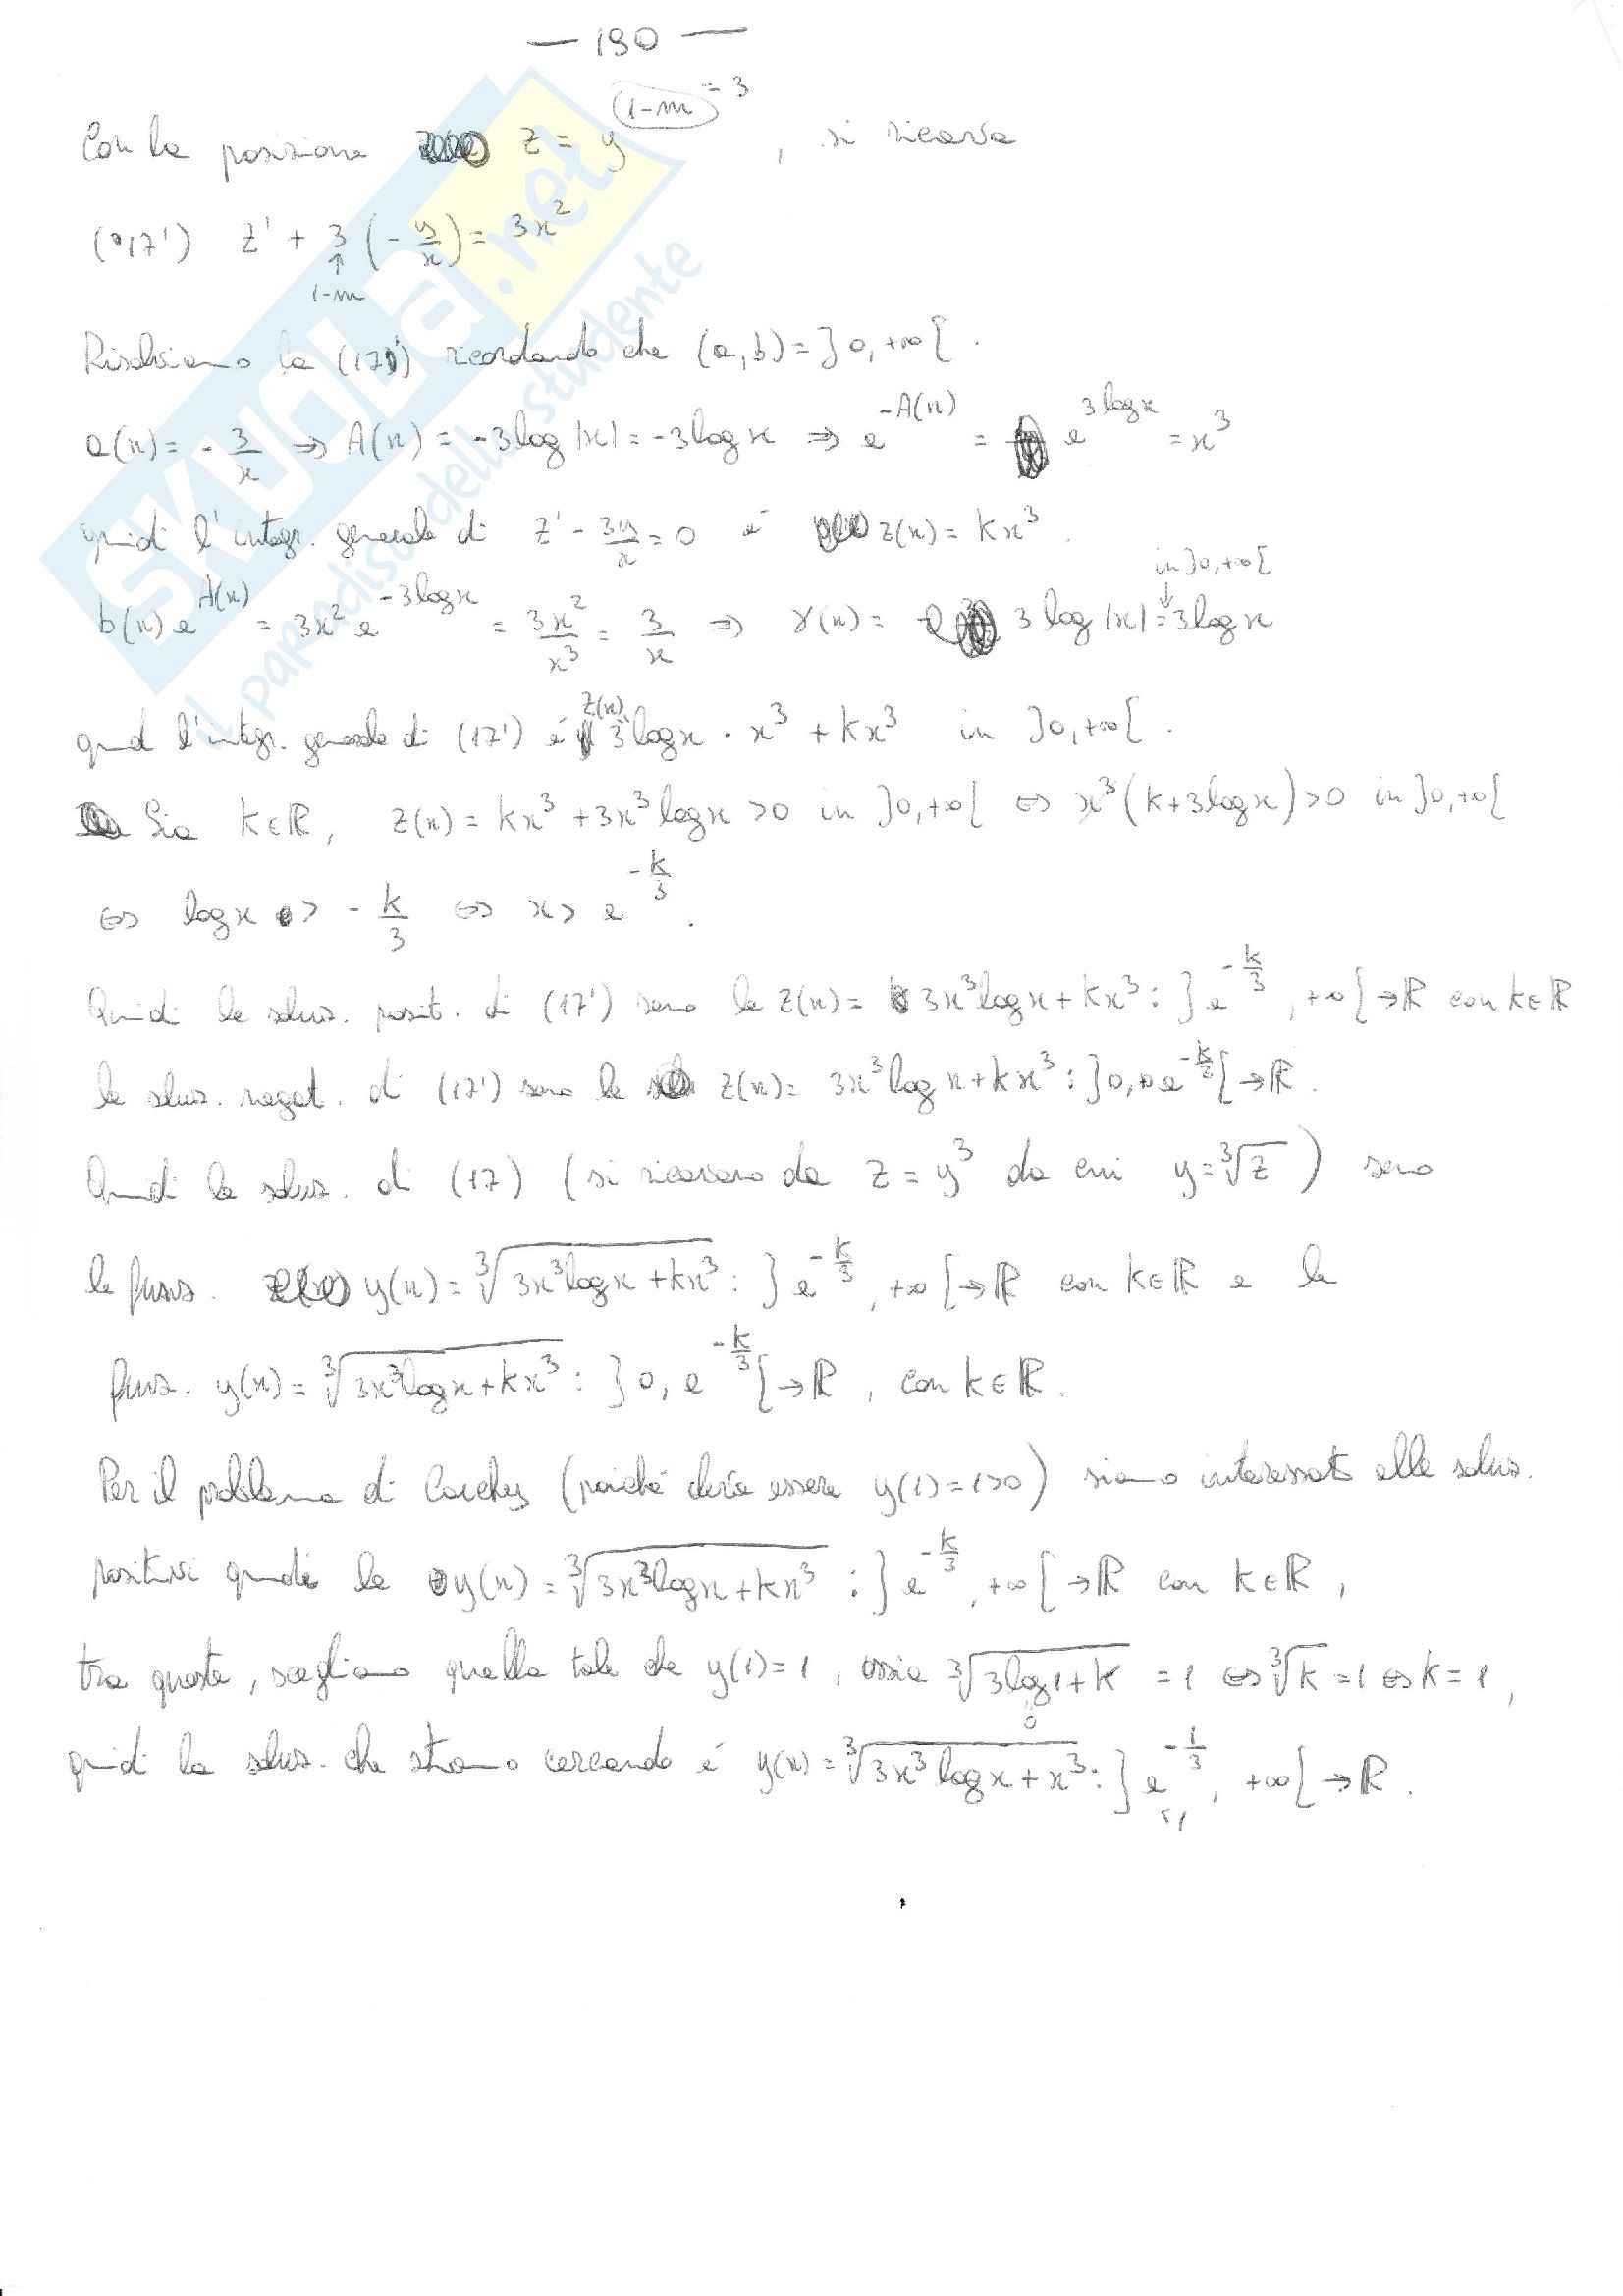 — 190 —
Con la posizione z = y^(1-m) = 3, si ricava
(17') z' + 3 (- y/x) = 3x²
↑
1-m
Risolviamo la (17') ricordando che (a,b) = ]0,+∞[.
a(x) = - 3/x ⇒ A(x) = -3log|x| = -3logx ⇒ e^(-A(x)) = e^(3logx) = x³
quindi l'integr. generale di z' - 3y/x = 0 è z(x) = kx³.
in ]0,+∞[
b(x)e^(A(x)) = 3x² e^(-3logx) = 3x²/x³ = 3/x ⇒ γ(x) = 3log|x| = 3logx
quind l'integr. generale di (17') è z(x) 3logx · x³ + kx³ in ]0,+∞[.
Sia k∈ℝ, z(x) = kx³ + 3x³logx > 0 in ]0,+∞[ ⇔ x³(k+3logx) > 0 in ]0,+∞[
⇔ logx > - k/3 ⇔ x > e^(-k/3).
Quindi le soluz. posit. di (17') sono le z(x) = 3x³logx + kx³ : ]e^(-k/3), +∞[ → ℝ con k∈ℝ
le soluz. negat. di (17') sono le z(x) = 3x³logx + kx³ : ]0, e^(-k/2)[ → ℝ.
Quindi le soluz. di (17) (si ricavano da z = y³ da cui y = ³√z) sono
le funz. y(x) = ³√(3x³logx + kx³) : ]e^(-k/3), +∞[ → ℝ con k∈ℝ e le
funz. y(x) = ³√(3x³logx + kx³) : ]0, e^(-k/3)[ → ℝ, con k∈ℝ.
Per il problema di Cauchy (poiché dovrà essere y(1) = 1 > 0) siamo interessati alle soluz.
positive quindi le y(x) = ³√(3x³logx + kx³) : ]e^(-k/3), +∞[ → ℝ con k∈ℝ,
tra queste, scegliamo quella tale che y(1) = 1, ossia ³√(3log1 + k) = 1 ⇔ ³√k = 1 ⇔ k = 1,
0
quindi la soluz. che stiamo cercando è y(x) = ³√(3x³logx + x³) : ]e^(-1/3), +∞[ → ℝ.
SKUOLA.net
il paradiso dello studente